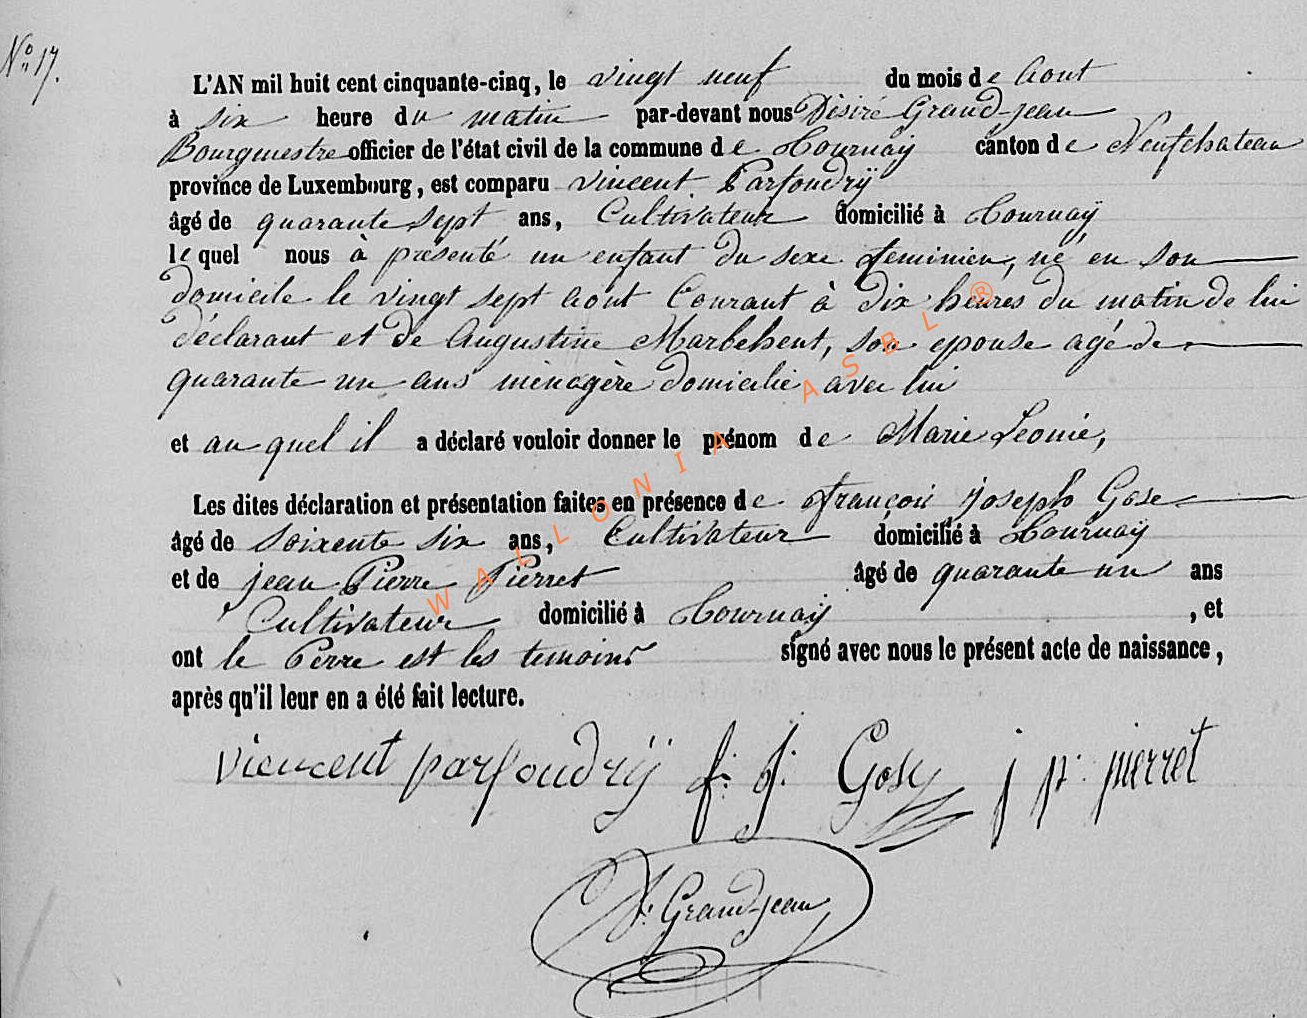 No 17.
L'AN mil huit cent cinquante-cinq, le vingt neuf du mois de Aout
à six heure du matin par-devant nous Désiré Grand-jean
Bourgmestre officier de l'état civil de la commune de Tournay canton de Neufchateau
province de Luxembourg, est comparu vincent Parfondrÿ
âgé de quarante sept ans, Cultivateur domicilié à Tournaÿ
le quel nous à présenté un enfant du sexe feminien, né en son
domicile le vingt sept Aout Courant à dix heures du matin de lui
déclarant et de Augustine Marbehent, son epouse agé de
quarante un ans ménagère domicilié avec lui
et au quel il a déclaré vouloir donner le prénom de Marie Leonie,
Les dites déclaration et présentation faites en présence de françois joseph Gose
âgé de Soixente six ans, Cultivateur domicilié à Tournaÿ
et de jean Pierre Pierret âgé de quarante un ans
Cultivateur domicilié à Tournaÿ , et
ont le Perre est les temoins signé avec nous le présent acte de naissance,
après qu'il leur en a été fait lecture.
viencent parfondrÿ f. j. Gosy j p. pierret
D. Grand-jean
WALLONIA ASBL ®